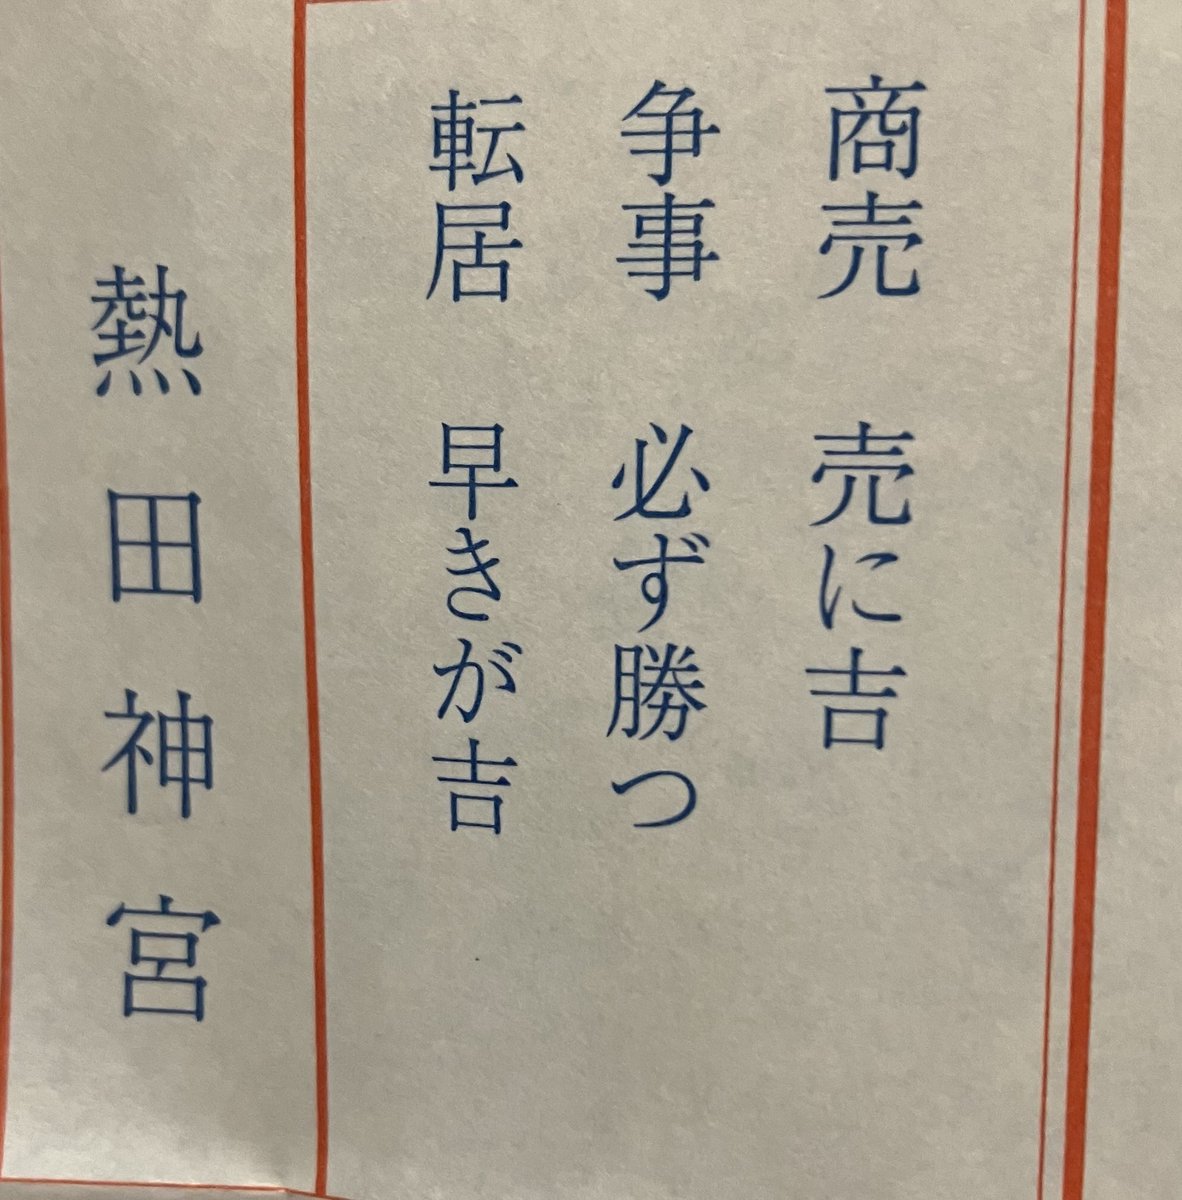 商売 売に吉
争事 必ず勝つ
転居 早きが吉
熱田神宮